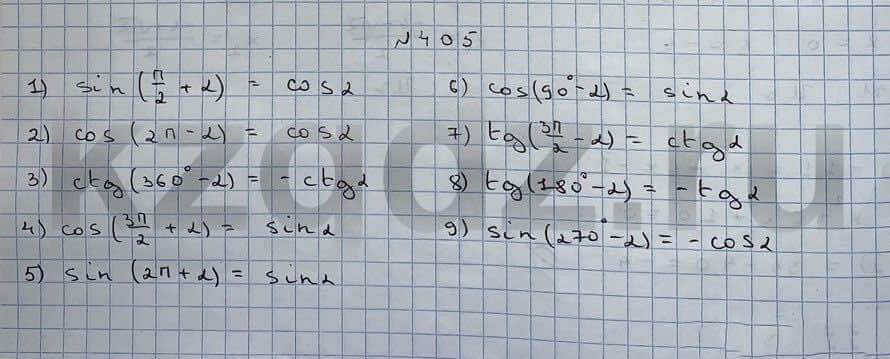 №405
1) sin(π/2 + α) = cosα
2) cos(2π - α) = cosα
3) ctg(360° - α) = - ctgα
4) cos(3π/2 + α) = sinα
5) sin(2π + α) = sinα
6) cos(90° - α) = sinα
7) tg(3π/2 - α) = ctgα
8) tg(180° - α) = - tgα
9) sin(270° - α) = - cosα
kzgdz.ru